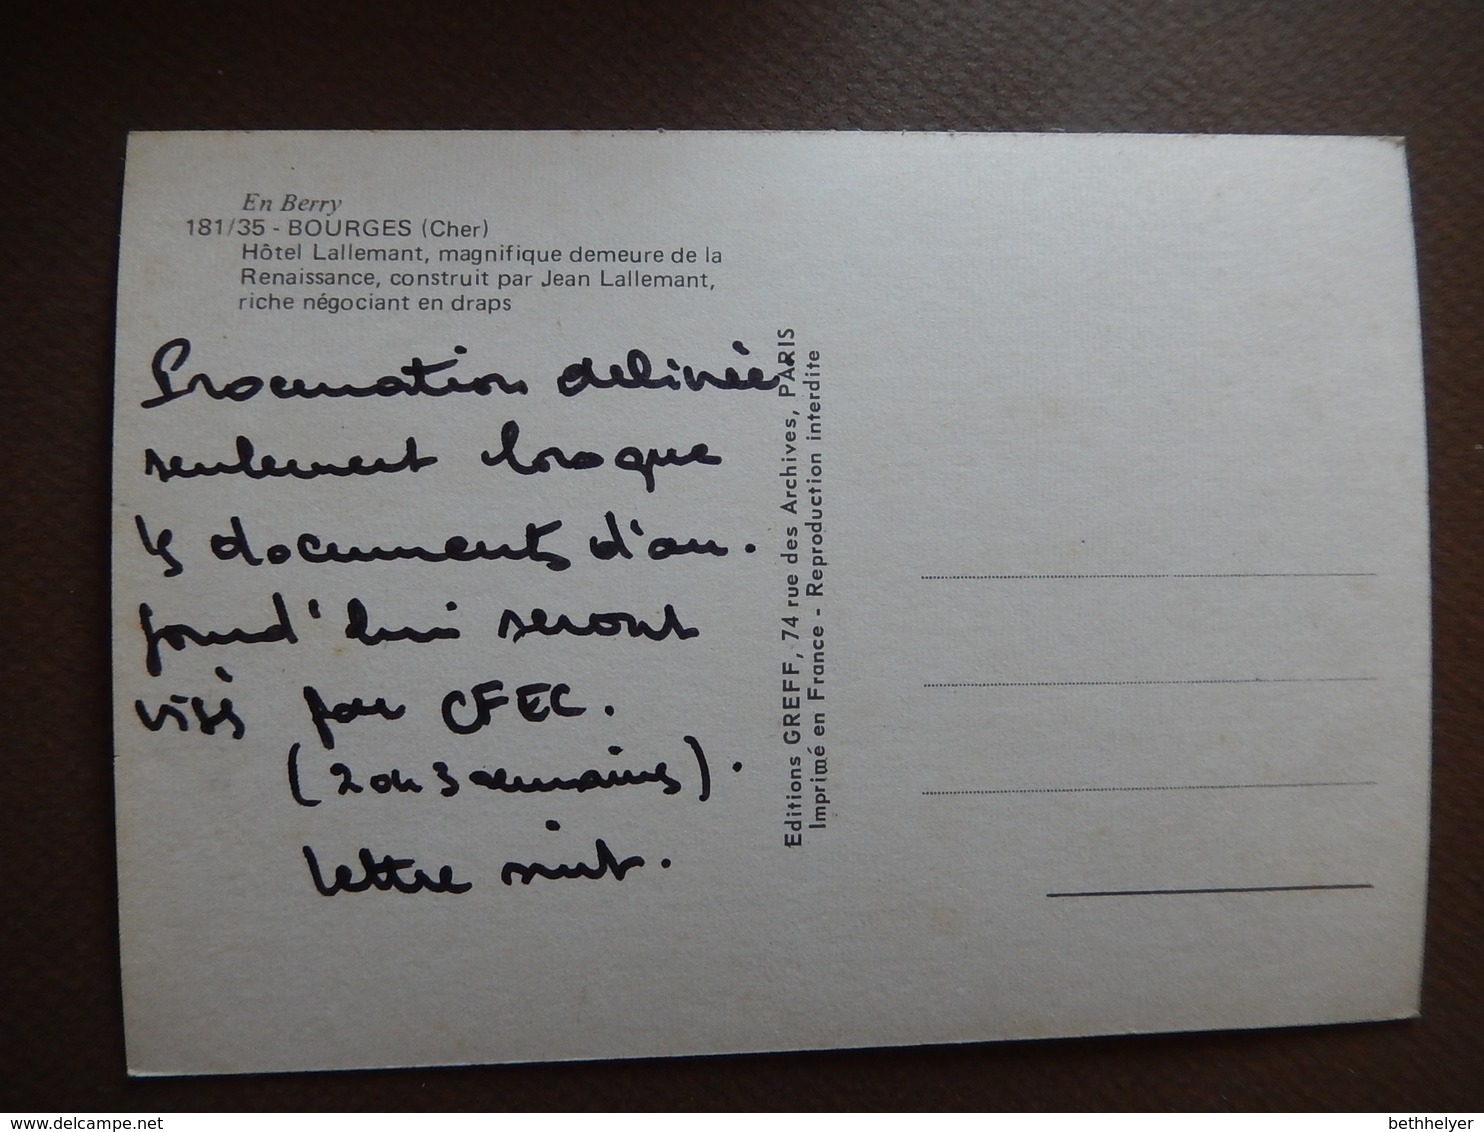 En Berry
181/35 - BOURGES (Cher)
Hôtel Lallemant, magnifique demeure de la
Renaissance, construit par Jean Lallemant,
riche négociant en draps
Procuration délivrée
seulement lorsque
ls documents d'au-
jourd'hui seront
visés par CFEC.
(2 ou 3 semaines).
lettre suit.
Editions GREFF, 74 rue des Archives, PARIS
Imprimé en France - Reproduction interdite
bethhelyer